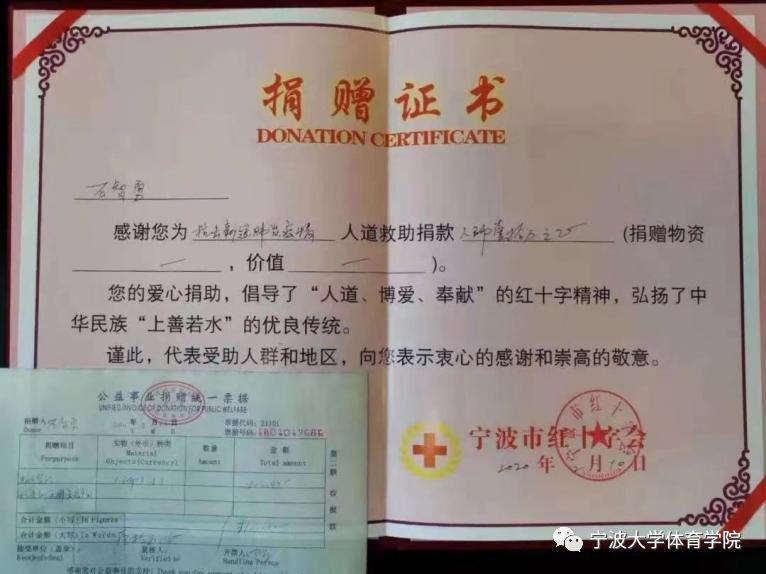 捐赠证书
DONATION CERTIFICATE
石智勇
感谢您为 抗击新冠肺炎疫情 人道救助捐款 人民币壹拾万元 (捐赠物资
,价值 )。
您的爱心捐助,倡导了“人道、博爱、奉献”的红十字精神,弘扬了中
华民族“上善若水”的优良传统。
谨此,代表受助人群和地区,向您表示衷心的感谢和崇高的敬意。
宁波市红十字会
2020年 月10日
公益事业捐赠统一票据
UNIFIED INVOICE OF DONATION FOR PUBLIC WELFARE
捐赠人 年 月 日 票据代码: 21101
票据号码:
捐赠项目 实物(外币)种类 数量 金额
Forpurpose Material Amount Total amount
Objects(Currency)
合计金额(小写)In Figures
合计金额(大写)In Words
接受单位(盖章): 复核人: 开票人:
Receiver's Seal Verified by Handling Person
感谢您对公益事业的支持! Thank you for
第二联 收据联
宁波大学体育学院